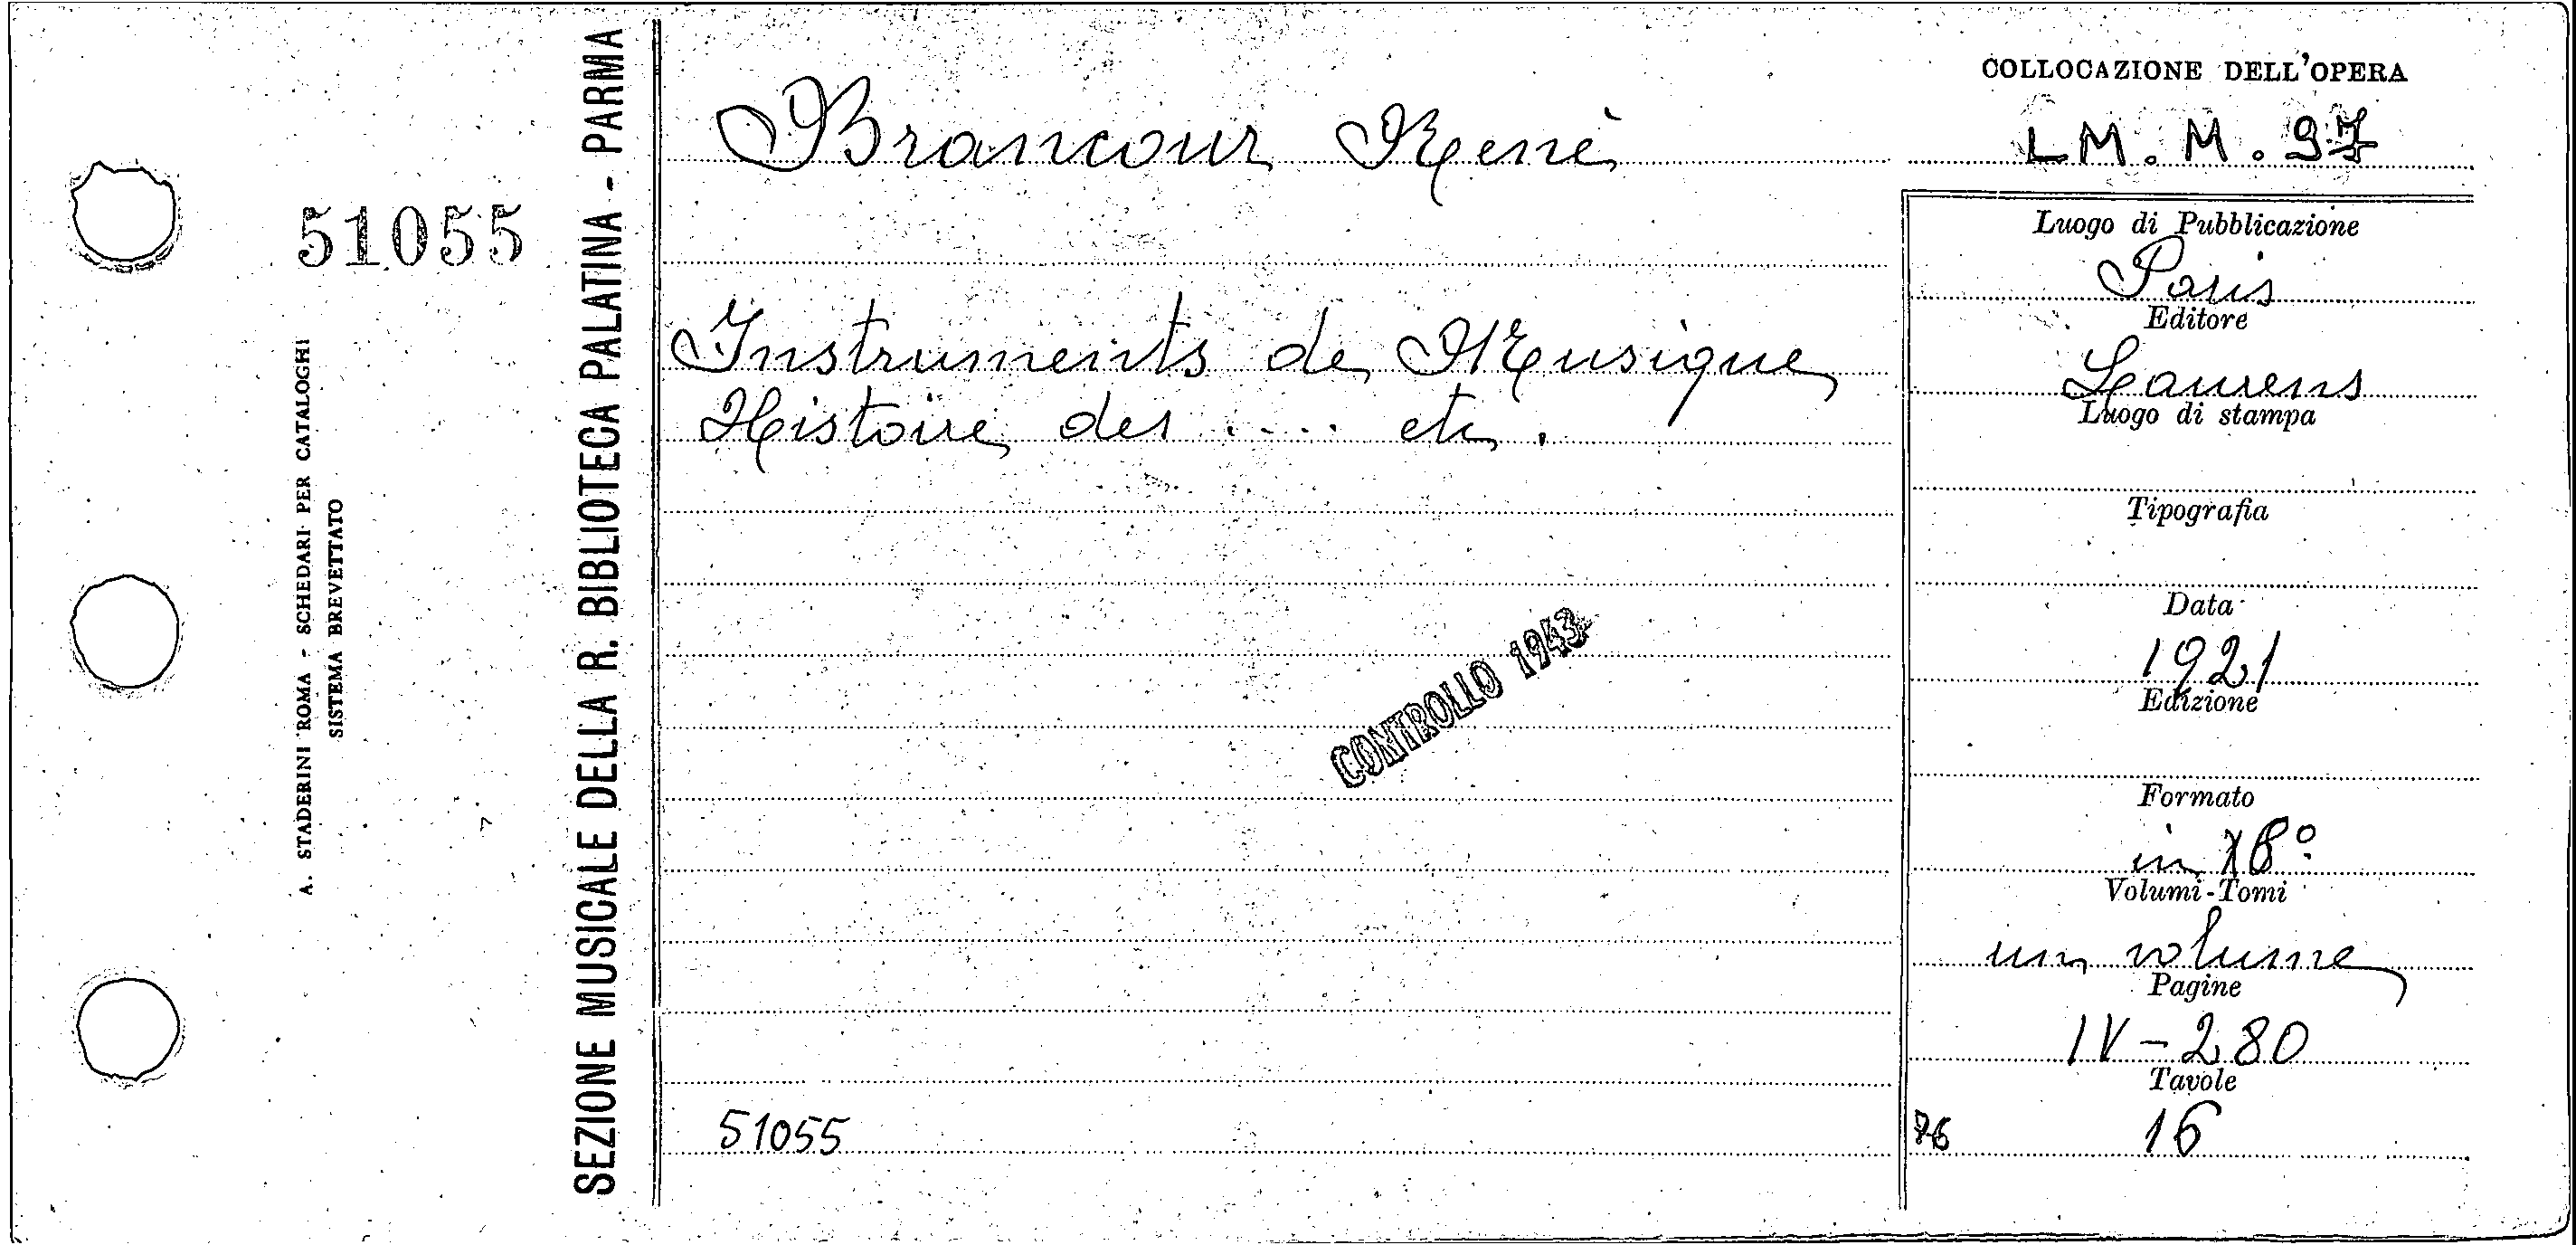 51055
A. STADERINI ROMA - SCHEDARI PER CATALOGHI
SISTEMA BREVETTATO
SEZIONE MUSICALE DELLA R. BIBLIOTECA PALATINA - PARMA
Brancour Renè
Instruments de Musique
Histoire des .... etc.
CONTROLLO 1943
51055
COLLOCAZIONE DELL'OPERA
LM. M. 97
Luogo di Pubblicazione
Paris
Editore
Laurens
Luogo di stampa
Tipografia
Data
1921
Edizione
Formato
in 8°
Volumi-Tomi
un volume
Pagine
IV-280
Tavole
16